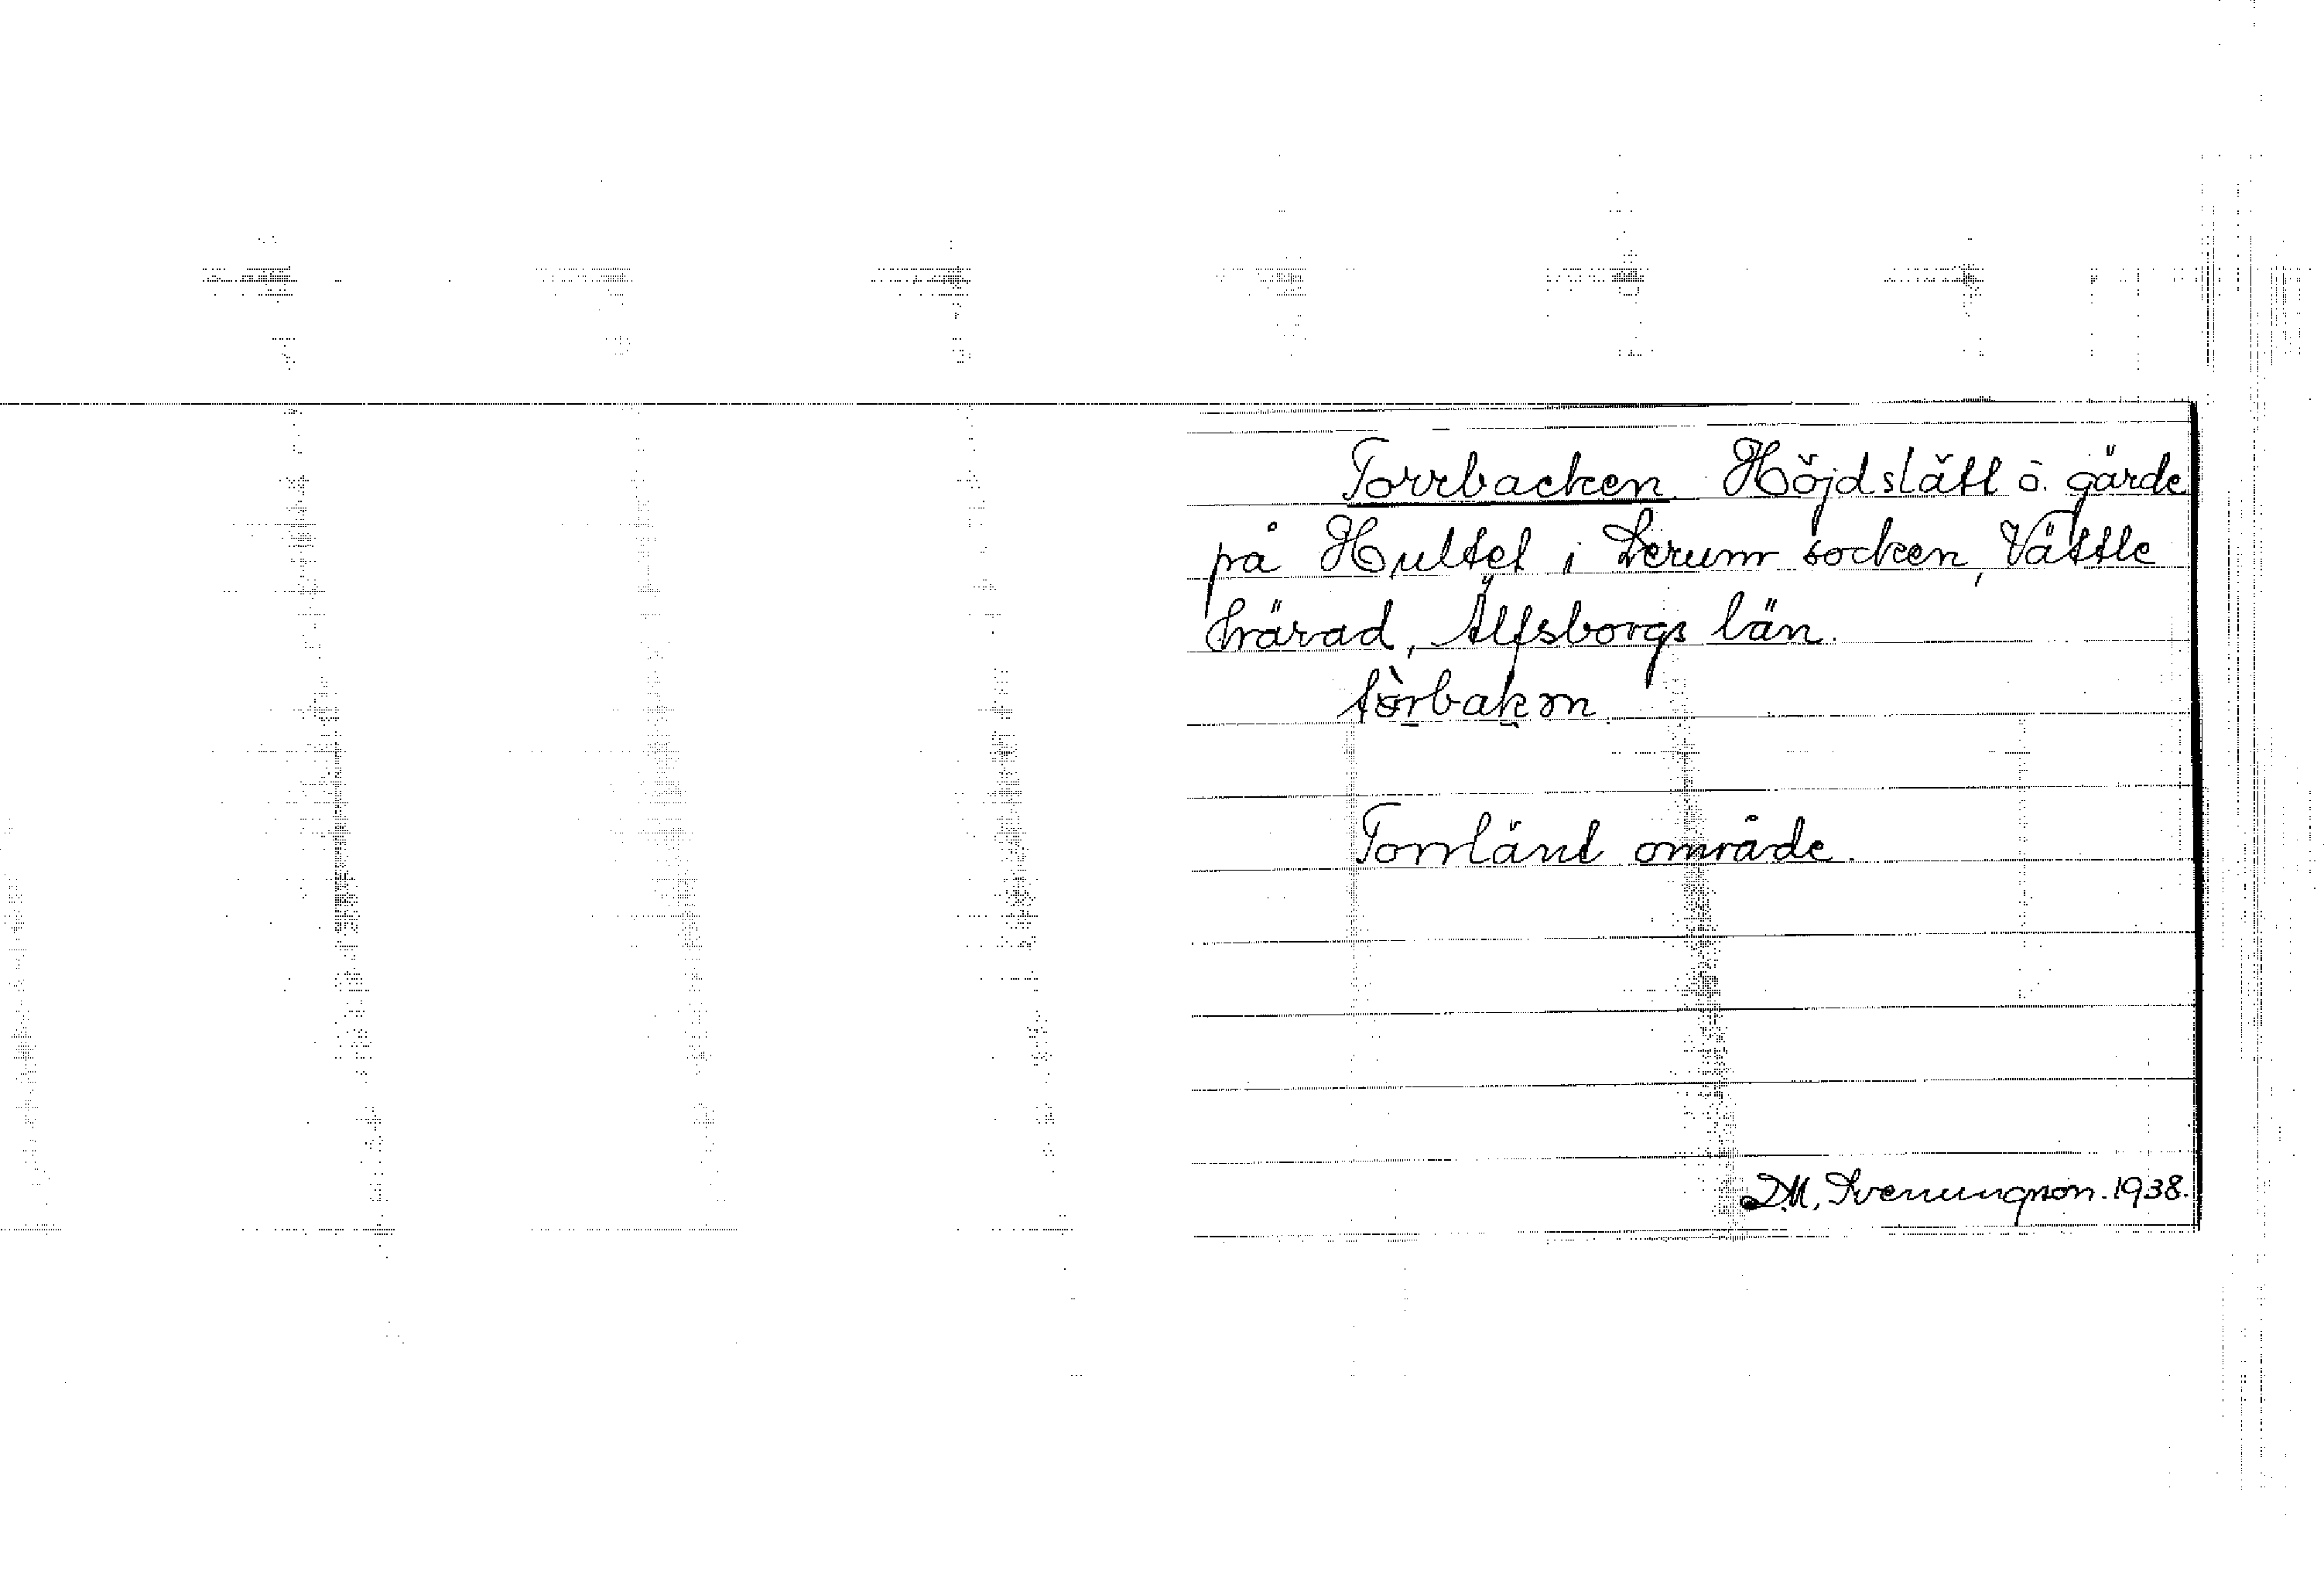 Torrbacken. Höjdslätt o. gärde
på Hultet i Lerum socken, Vättle
härad, Älfsborgs län.
tòrbakən
Torrlänt område.
D.M. Svenungson. 1938.